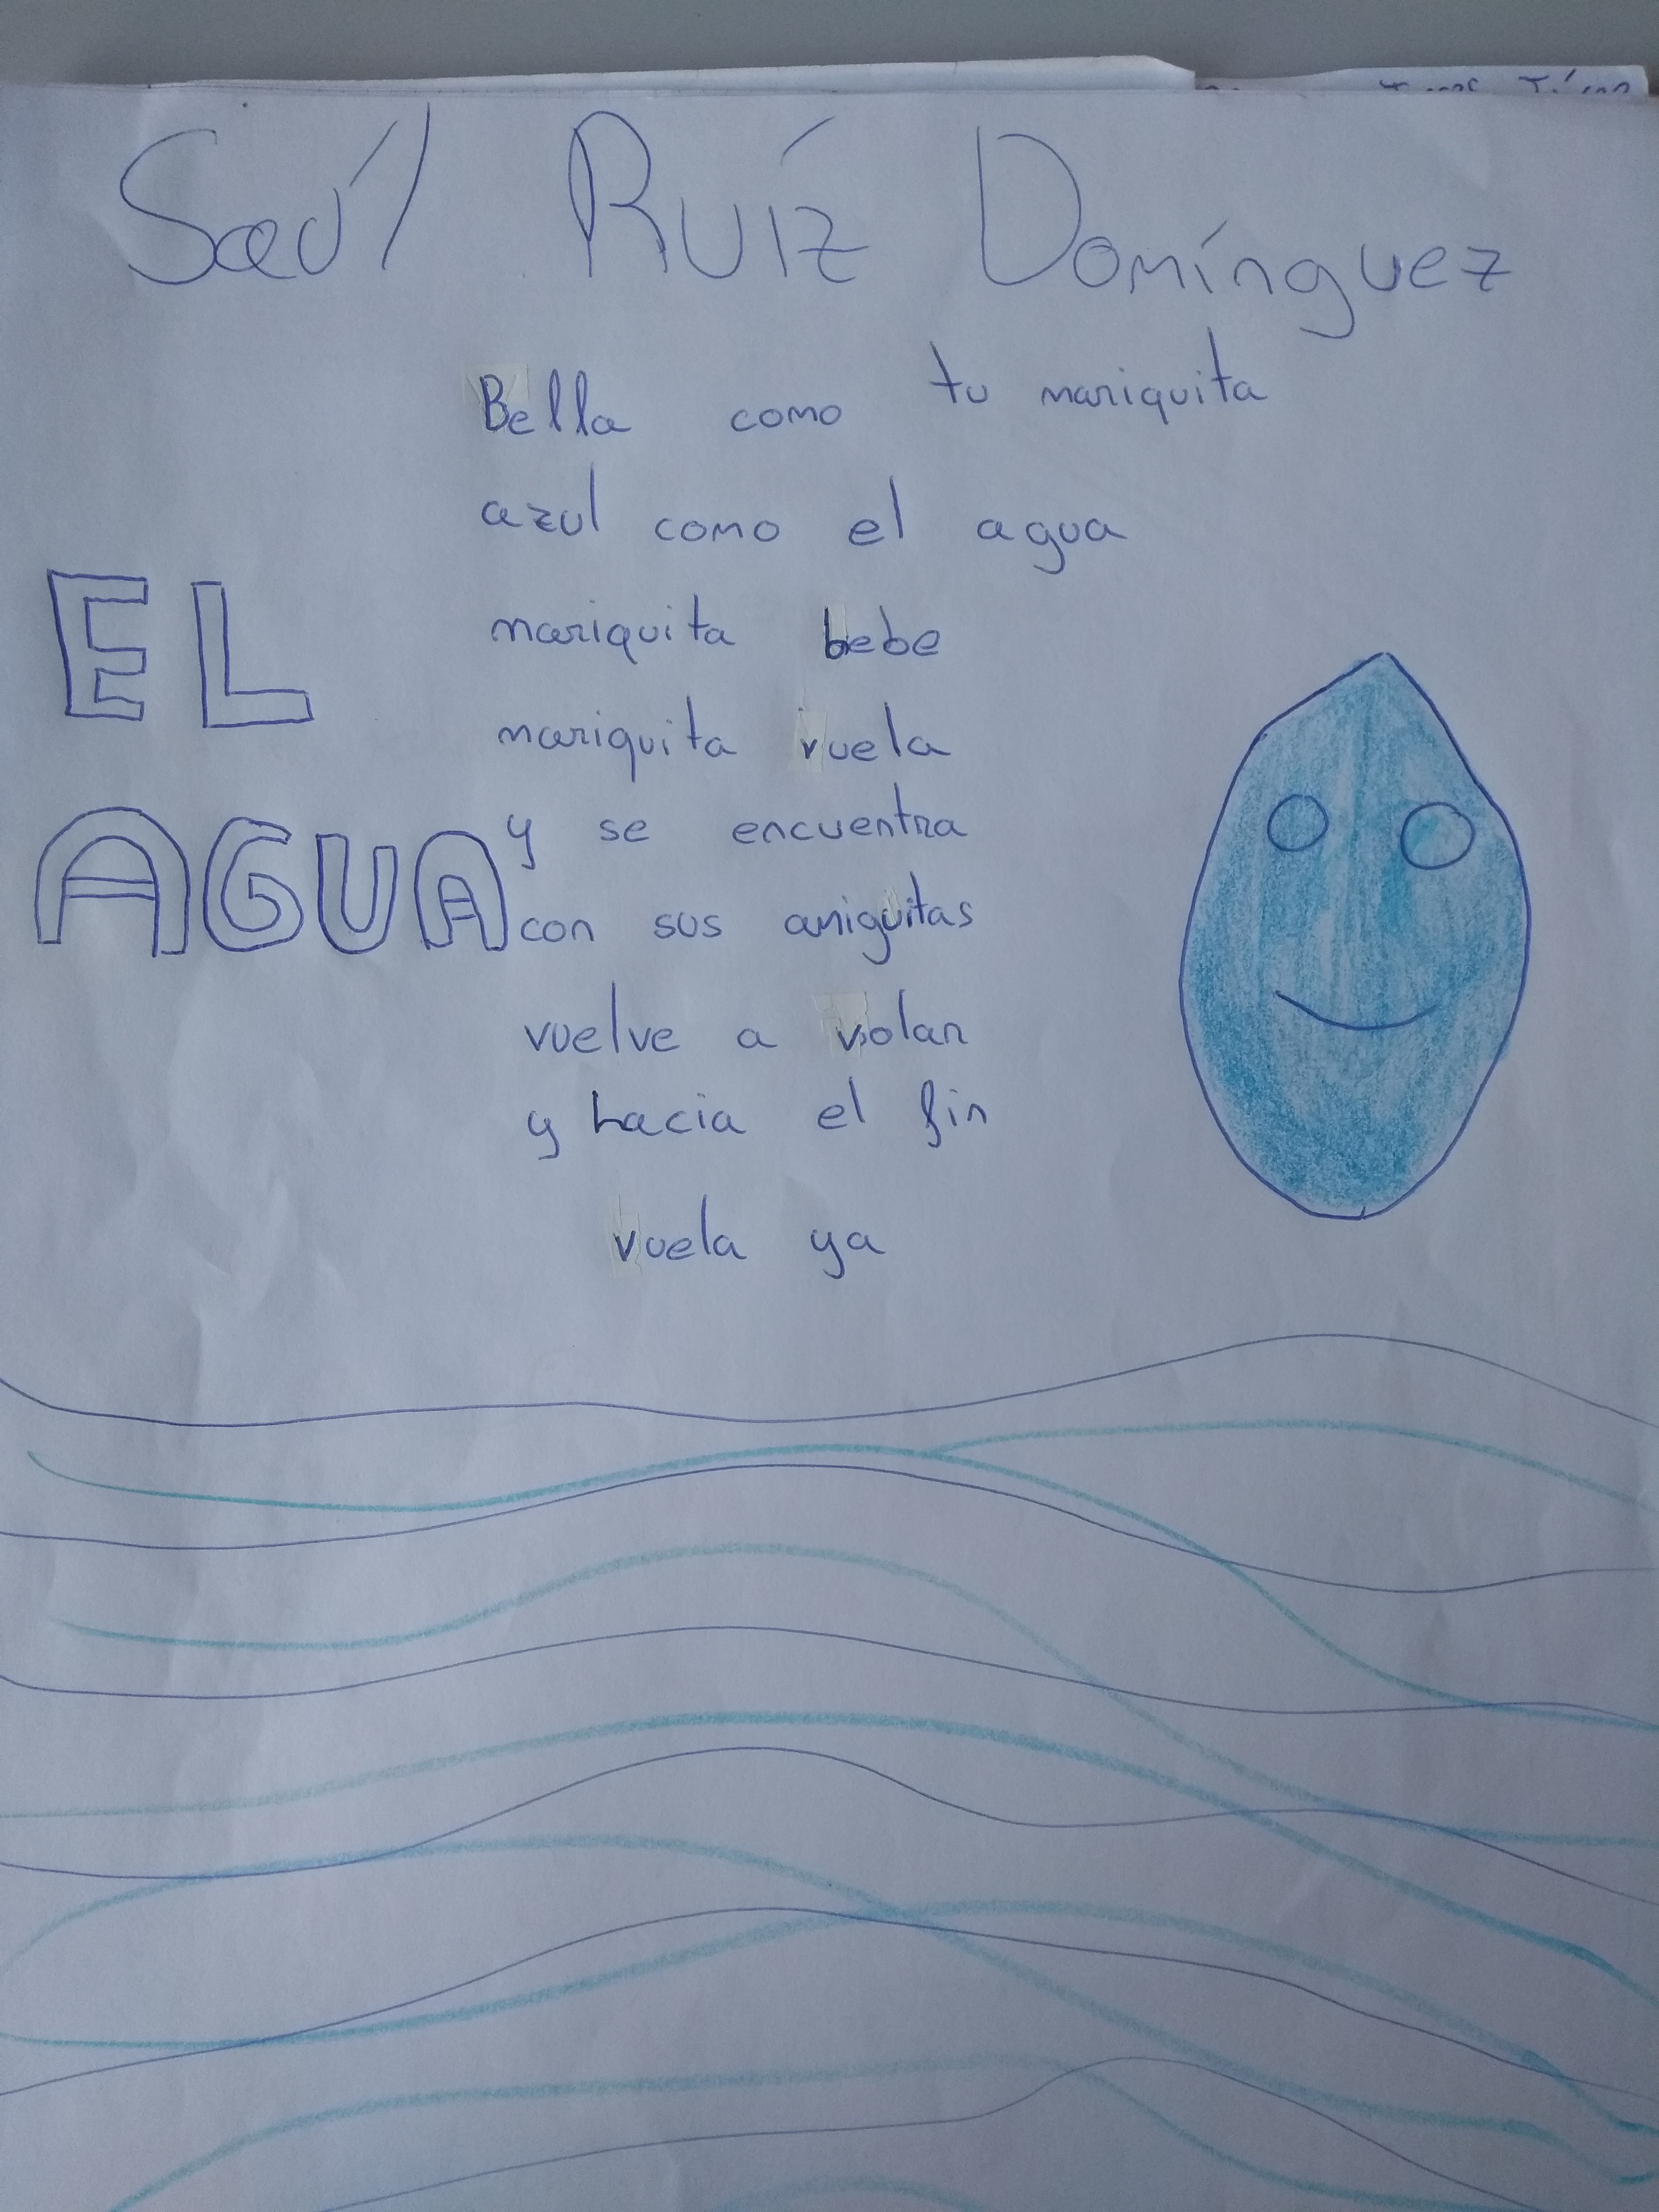 Saúl Ruíz Domínguez
Bella como tu mariquita
azul como el agua
mariquita bebe
mariquita vuela
y se encuentra
con sus amiguitas
vuelve a volar
y hacia el fin
vuela ya
EL
AGUA